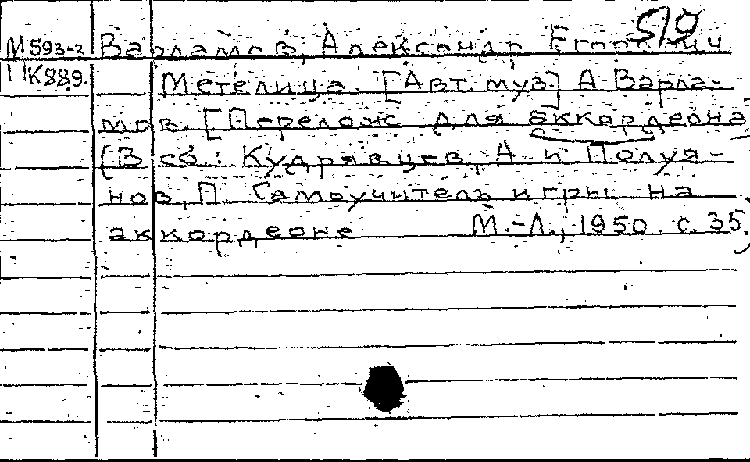 510
М 593-2 Варламов, Александр Егорович
К889. Метелица. [Авт. муз.] А. Варла-
мов. [Перелож. для аккордеона]
(В сб.: Кудрявцев, А. и Полуя-
нов, П. Самоучитель игры на
аккордеоне М.-Л., 1950. с. 35)